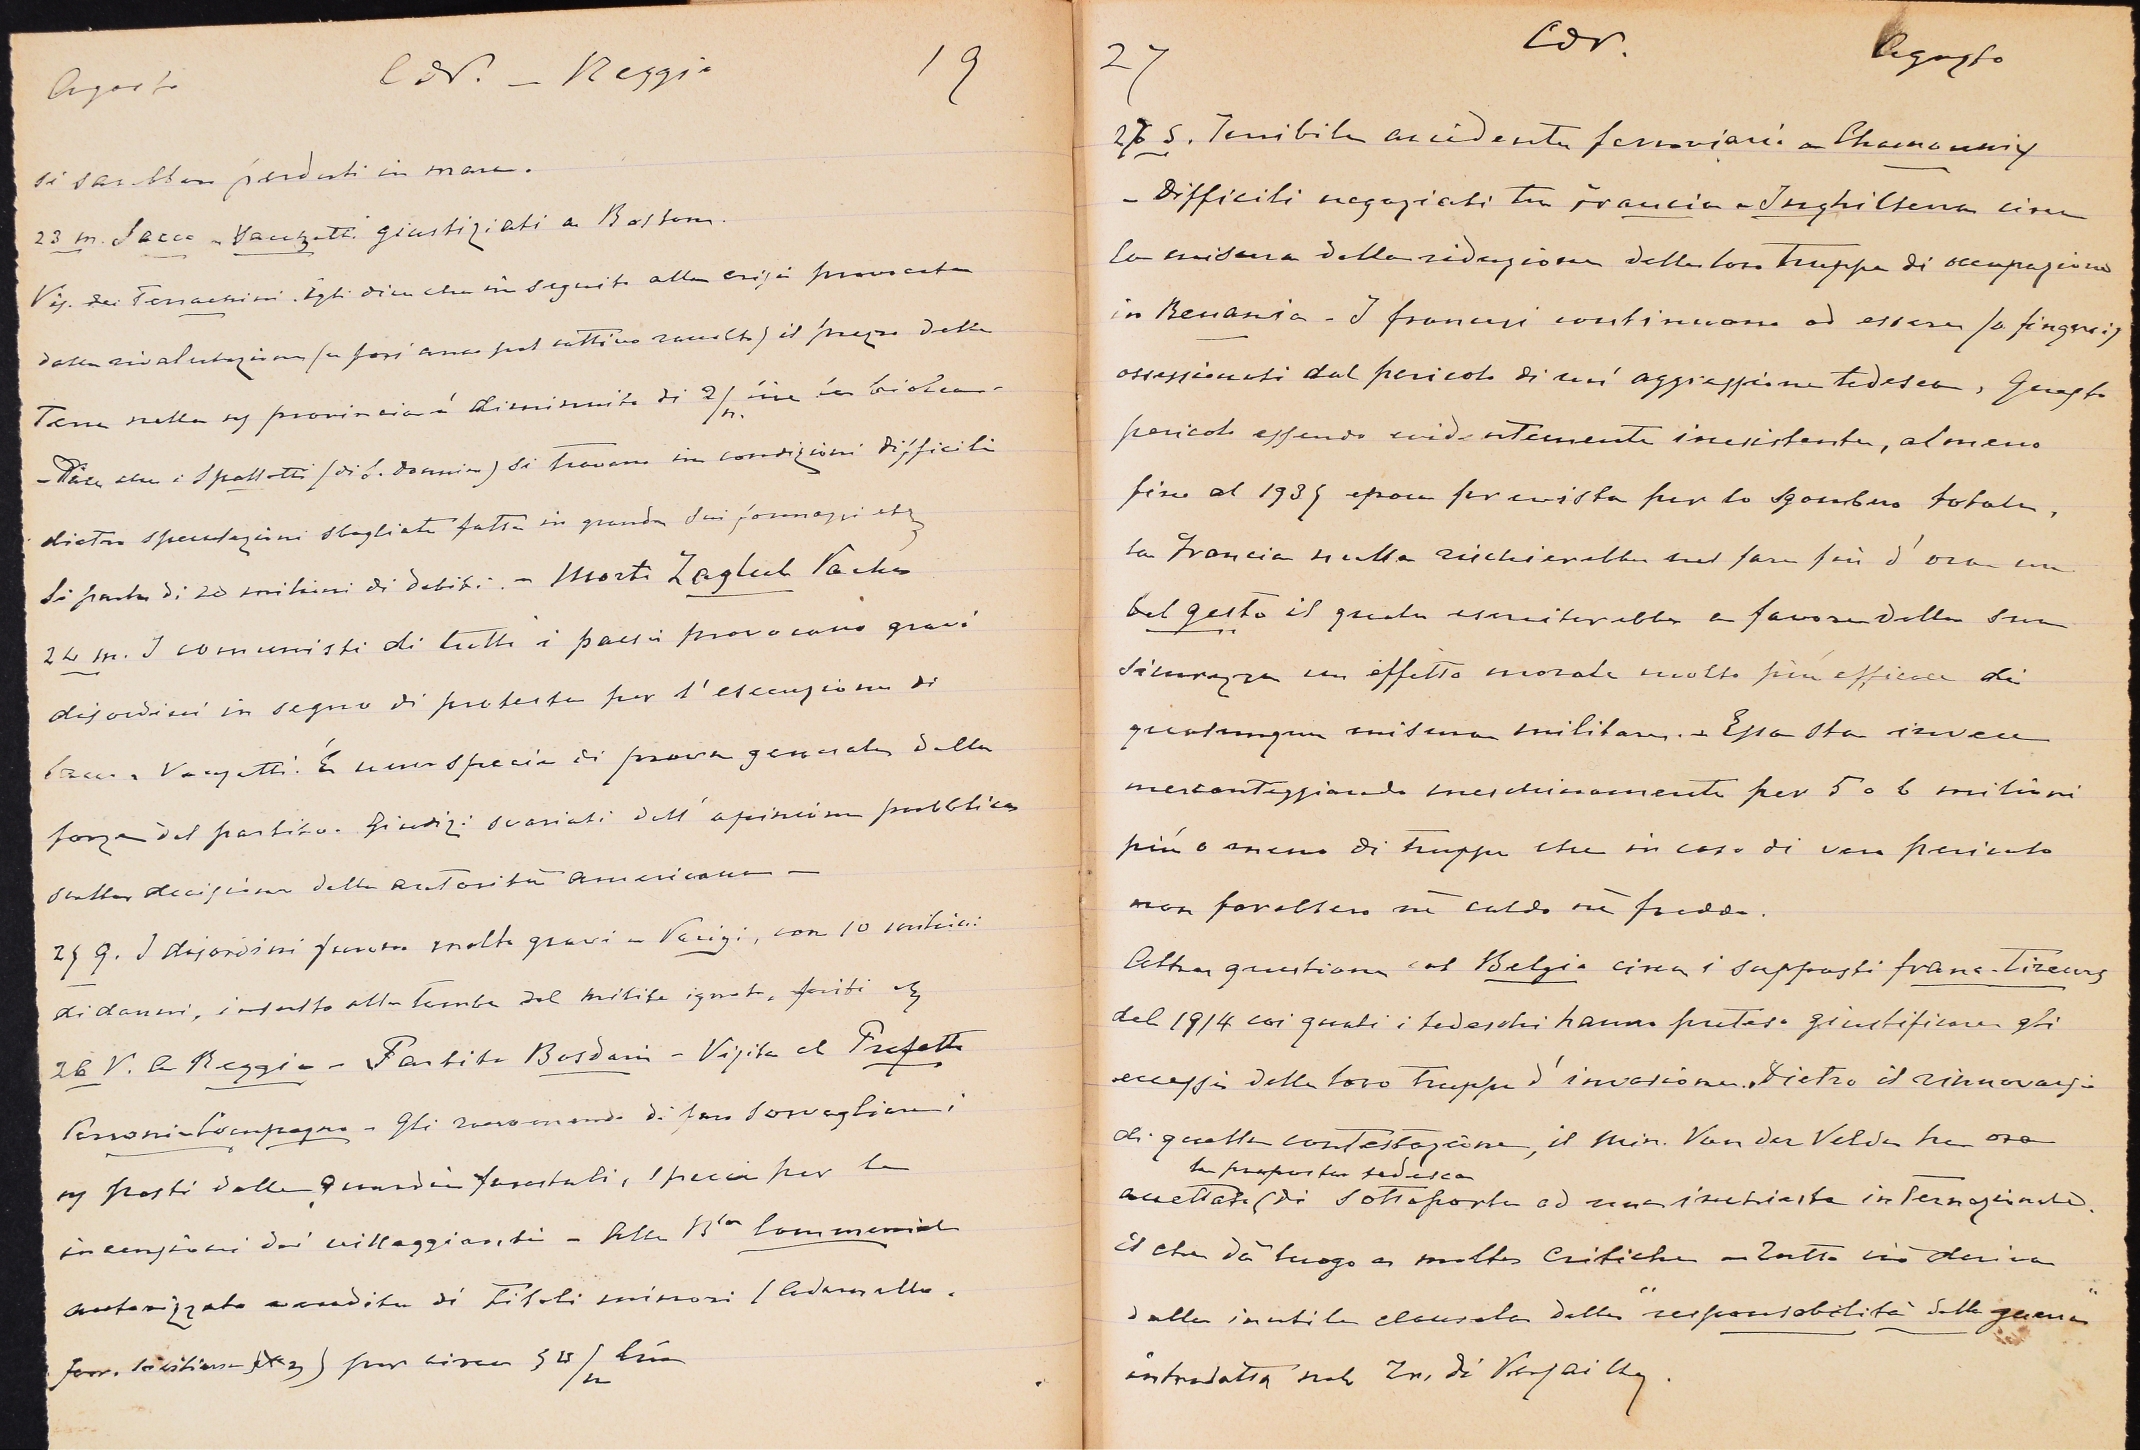 Agosto CdV. – Reggio 19
si sarebbero perduti in mare.
23 m. Sacco e Vanzetti giustiziati a Boston.
Vis. dei Terrachini. Egli dice che in seguito alla crisi provocata
dalla rivalutazione (e forse anco pel cattivo raccolto) il prezzo della
terra nella ns provincia è diminuito di 2/m. lire la biolca –
– Dice che i Spallotti (di S. Donnino) si trovano in condizioni difficili
dietro speculazioni sbagliate fatte in grande sui formaggi etc
Si parla di 20 milioni di debiti. – Morto Zaglul Pacha
24 m. I comunisti di tutti i paesi provocano gravi
disordini in segno di protesta per l'esecuzione di
Sacco e Vanzetti. È una specie di prova generale delle
forze del partito. Giudizi svariati dell'opinione pubblica
sulla decisione delle autorità americane –
25 g. I disordini furono molto gravi a Parigi, con 10 milioni
di danni, insulto alla tomba del milite ignoto, feriti etc
26 V. A Reggio – Partito Bosdari – Visita al Prefetto
Gli raccomando di fare sorvegliare i
ns posti dalle Guardie forestali, specie per le
incursioni dei villeggianti – Alla Bca Commerciale
autorizzato vendita di titoli minori (Adamello,
per circa /m lire
27 CdV. Agosto
27 S. Terribile accidente ferroviario a Chamounix
– Difficili negoziati tra Francia e Inghilterra circa
la misura della riduzione delle loro truppe di occupazione
in Renania – I francesi continuano ad essere (o fingersi)
ossessionati dal pericolo di un'aggressione tedesca. Questo
pericolo essendo evidentemente inesistente, almeno
fino al 1935 epoca prevista per lo sgombero totale,
la Francia nulla rischierebbe nel fare fin d'ora un
bel gesto il quale eserciterebbe a favore della sua
sicurezza un effetto morale molto più efficace di
qualunque misura militare. – Essa sta invece
mercanteggiando meschinamente per 5 o 6 milioni
più o meno di truppe che in caso di vero pericolo
non farebbero nè caldo nè freddo.
Altra questione col Belgio circa i supposti franc-tireurs
del 1914 coi quali i tedeschi hanno preteso giustificare gli
eccessi delle loro truppe d'invasione. Dietro il rinnovarsi
di quella contestazione, il Min. Van der Velde ha ora
la proposta tedesca
accettato (di sottoporla ad una inchiesta internazionale.
Il che dà luogo a molte critiche – Tutto ciò deriva
dalla inutile clausola della "responsabilità della guerra"
introdotta nel Tr. di Versailles.